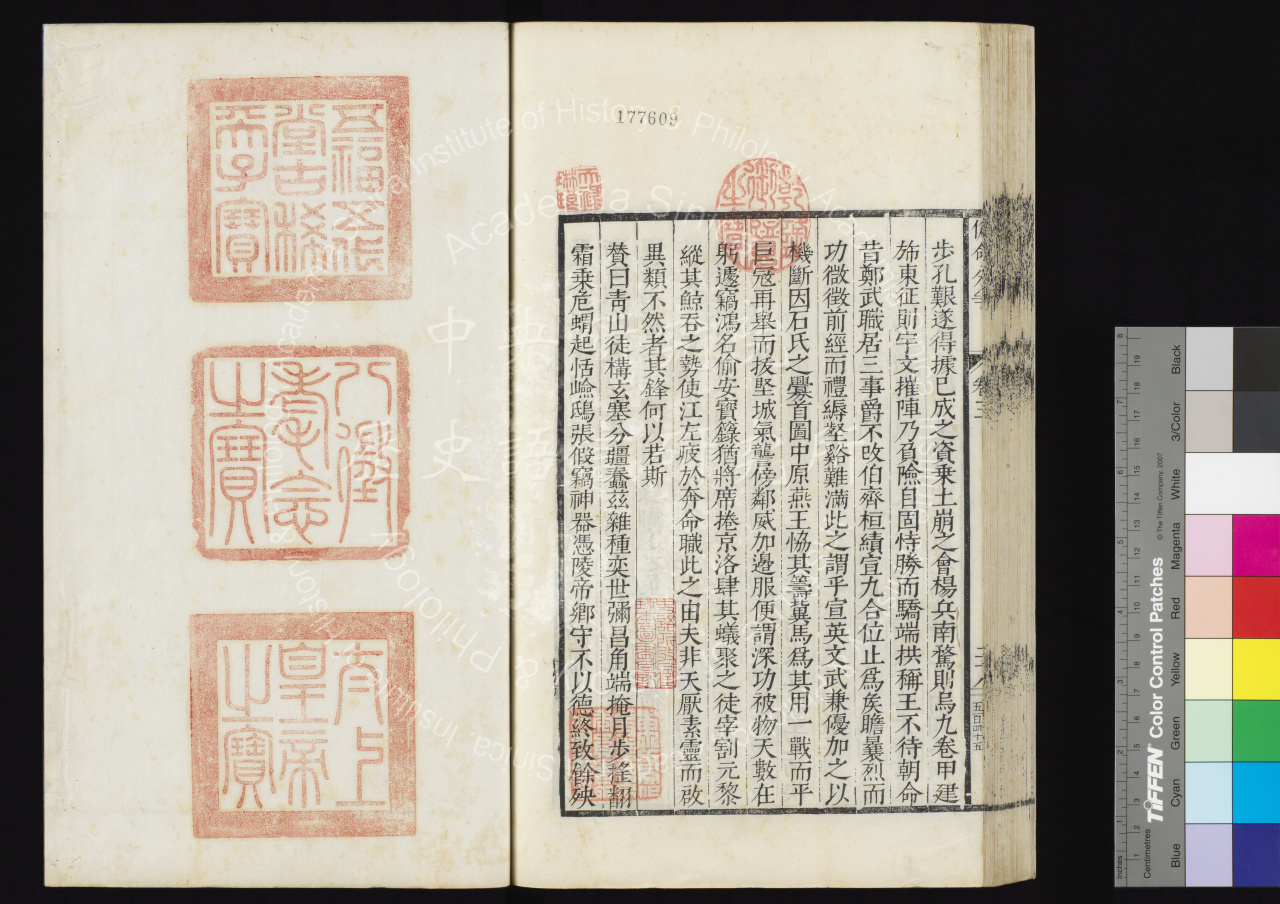 步孔艱遂得據已成之資乘土崩之會楊兵南騖則烏九卷甲建
斾東征則宇文摧陣乃負險自固恃勝而驕端拱稱王不待朝命
昔鄭武職居三事爵不改伯齊桓績宣九合位止爲侯瞻曩烈而
功微徵前經而禮縟谿壑難滿此之謂乎宣英文武兼優加之以
機斷因石氏之釁首圖中原燕王協其籌冀馬爲其用一戰而平
巨寇再舉而拔堅城氣讋傍鄰威加邊服便謂深功被物天數在
躬遽竊鴻名偷安寶籙猶將席捲京洛肆其蟻聚之徒宰割元黎
縱其鯨吞之勢使江左疲於奔命職此之由夫非天厭素靈而啟
異類不然者其鋒何以若斯
贊曰靑山徙構玄塞分疆蠢茲雜種奕世彌昌角端掩月步搖翻
霜乗危蝟起恬嶮鴟張假竊神器憑陵帝鄉守不以德終致餘殃
五百四十五
177609
五福五代
堂古稀
天子寶
八徵
耄念
之寶
太上
皇帝
之寶
乾隆
御覽
之寶
天祿
琳琅
中央
史語
Institute of History & Philology
Academia Sinica
TIFFEN Color Control Patches
© The Tiffen Company, 2007
Inches
Centimetres
Blue
Cyan
Green
Yellow
Red
Magenta
White
3/Color
Black